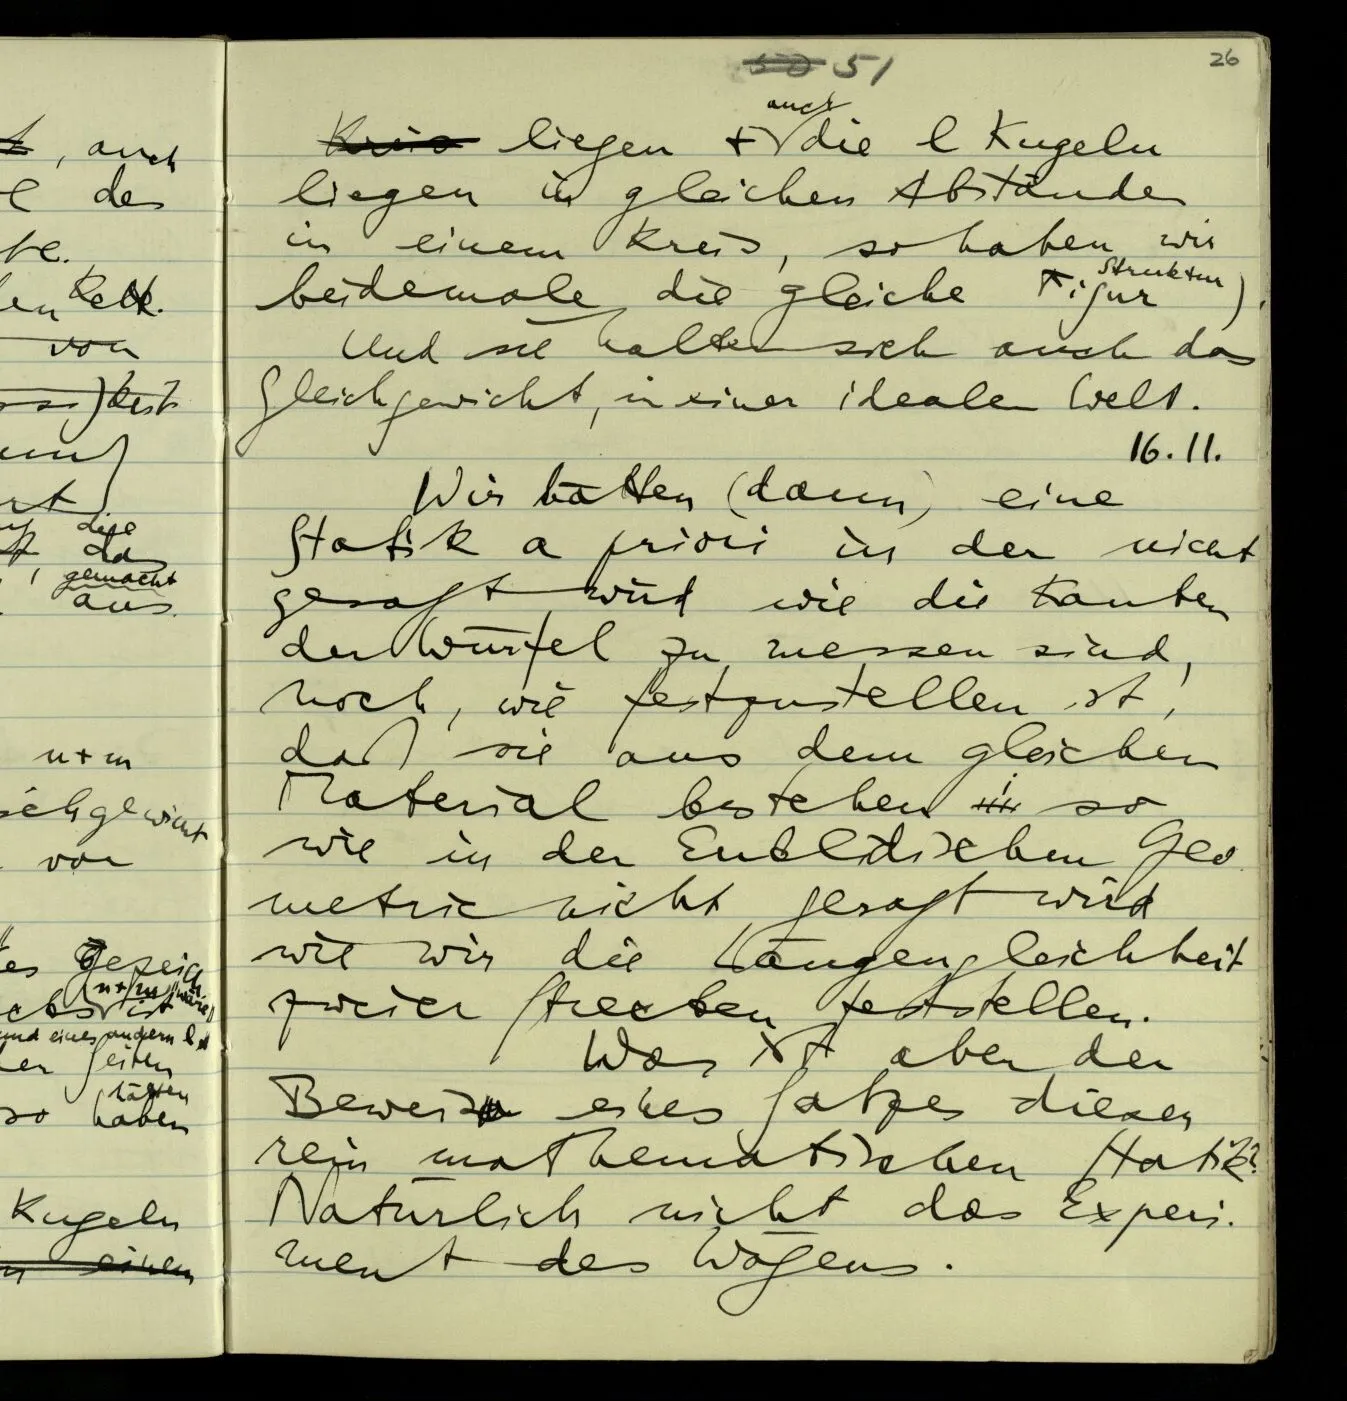 , auch
des
von
die
da
gemacht
aus.
n+m
von
n+m wäre
und eines andern l
der Seiten
hätten
so haben
Kugeln
in einen
50 51
26
auch
Kreis liegen + die l Kugeln
liegen in gleichen Abständen
in einem Kreis, so haben wir
Struktur
beidemale die gleiche Figur).
Und sie halten sich auch das
Gleichgewicht, in einer idealen Welt.
16.11.
Wir hätten (dann) eine
Statik a priori in der nicht
gesagt wird wie die Kanten
der Würfel zu messen sind,
noch, wie festzustellen ist,
daß sie aus dem gleichen
Material bestehen; so
wie in der Euklidischen Geo
metrie nicht gesagt wird
wie wir die Längengleichheit
zweier Strecken feststellen.
Was ist aber der
Beweis eines Satzes dieser
rein mathematischen Statik?
Natürlich nicht das Experi-
ment des Wägens.